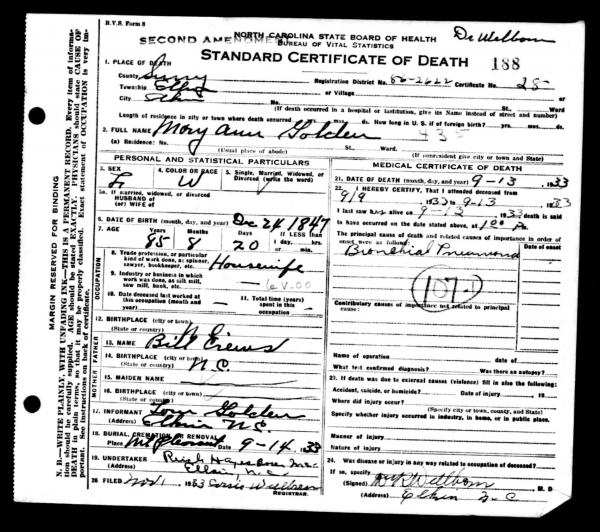 B.V.S. Form 8
NORTH CAROLINA STATE BOARD OF HEALTH
SECOND AMENDMENT
BUREAU OF VITAL STATISTICS
Dr Welborn
STANDARD CERTIFICATE OF DEATH 188
1. PLACE OF DEATH
County Surry
Registration District No. 86-2622 Certificate No. 28
Township Elkin or Village
City Elkin No. St., Ward
(If death occurred in a hospital or institution, give its Name instead of street and number)
Length of residence in city or town where death occurred yrs. mos. ds. How long in U. S. if of foreign birth? yrs. mos. ds.
2. FULL NAME Mary Ann Golden 435
(a) Residence: No. St., Ward
(Usual place of abode) (If nonresident give city or town and State)
PERSONAL AND STATISTICAL PARTICULARS
3. SEX
4. COLOR OR RACE W
5. Single, Married, Widowed, or Divorced (write the word)
5a. If married, widowed, or divorced
HUSBAND of
(or) WIFE of
6. DATE OF BIRTH (month, day, and year) Dec 24 1847
7. AGE Years Months Days If LESS than
85 8 20 1 day, hrs.
or min.
8. Trade, profession, or particular kind of work done, as spinner, sawyer, bookkeeper, etc. Housewife
9. Industry or business in which work was done, as silk mill, saw mill, bank, etc.
10. Date deceased last worked at this occupation (month and year)
11. Total time (years) spent in this occupation
12. BIRTHPLACE (city or town) N C
(State or country)
13. NAME Bill Crews
14. BIRTHPLACE (city or town) N.C.
(State or country)
15. MAIDEN NAME
16. BIRTHPLACE (city or town)
(State or country)
17. INFORMANT Tom Golden
(Address) Elkin N.C.
18. BURIAL, CREMATION OR REMOVAL
Place Mt Pleasant Date 9-14 1933
19. UNDERTAKER
(Address) Elkin N.C.
20 FILED Nov 1 1933
REGISTRAR.
MEDICAL CERTIFICATE OF DEATH
21. DATE OF DEATH (month, day, and year) 9-13 1933
22. I HEREBY CERTIFY, That I attended deceased from
9/9 1933 to 9-13 1933
I last saw her alive on 9-13 1933 death is said
to have occurred on the date stated above, at
The principal cause of death and related causes of importance in order
onset were as follows: Date of onset
Bronchial Pneumonia
107-1
Contributory causes of importance not related to principal
cause:
Name of operation Date of
What test confirmed diagnosis? Was there an autopsy?
23. If death was due to external causes (violence) fill in also the following:
Accident, suicide, or homicide? Date of injury 19
Where did injury occur?
(Specify city or town, county, and State)
Specify whether injury occurred in industry, in home, or in public place.
Manner of injury
Nature of injury
24. Was disease or injury in any way related to occupation of deceased?
If so, specify
(Signed) Welborn M. D
(Address) Elkin N C
MARGIN RESERVED FOR BINDING
N. B.—WRITE PLAINLY, WITH UNFADING INK—THIS IS A PERMANENT RECORD. Every item of information should be carefully supplied. AGE should be stated EXACTLY. PHYSICIANS should state CAUSE OF DEATH in plain terms, so that it may be properly classified. Exact statement of OCCUPATION is very important. See instructions on back of certificate.
OCCUPATION
FATHER
MOTHER